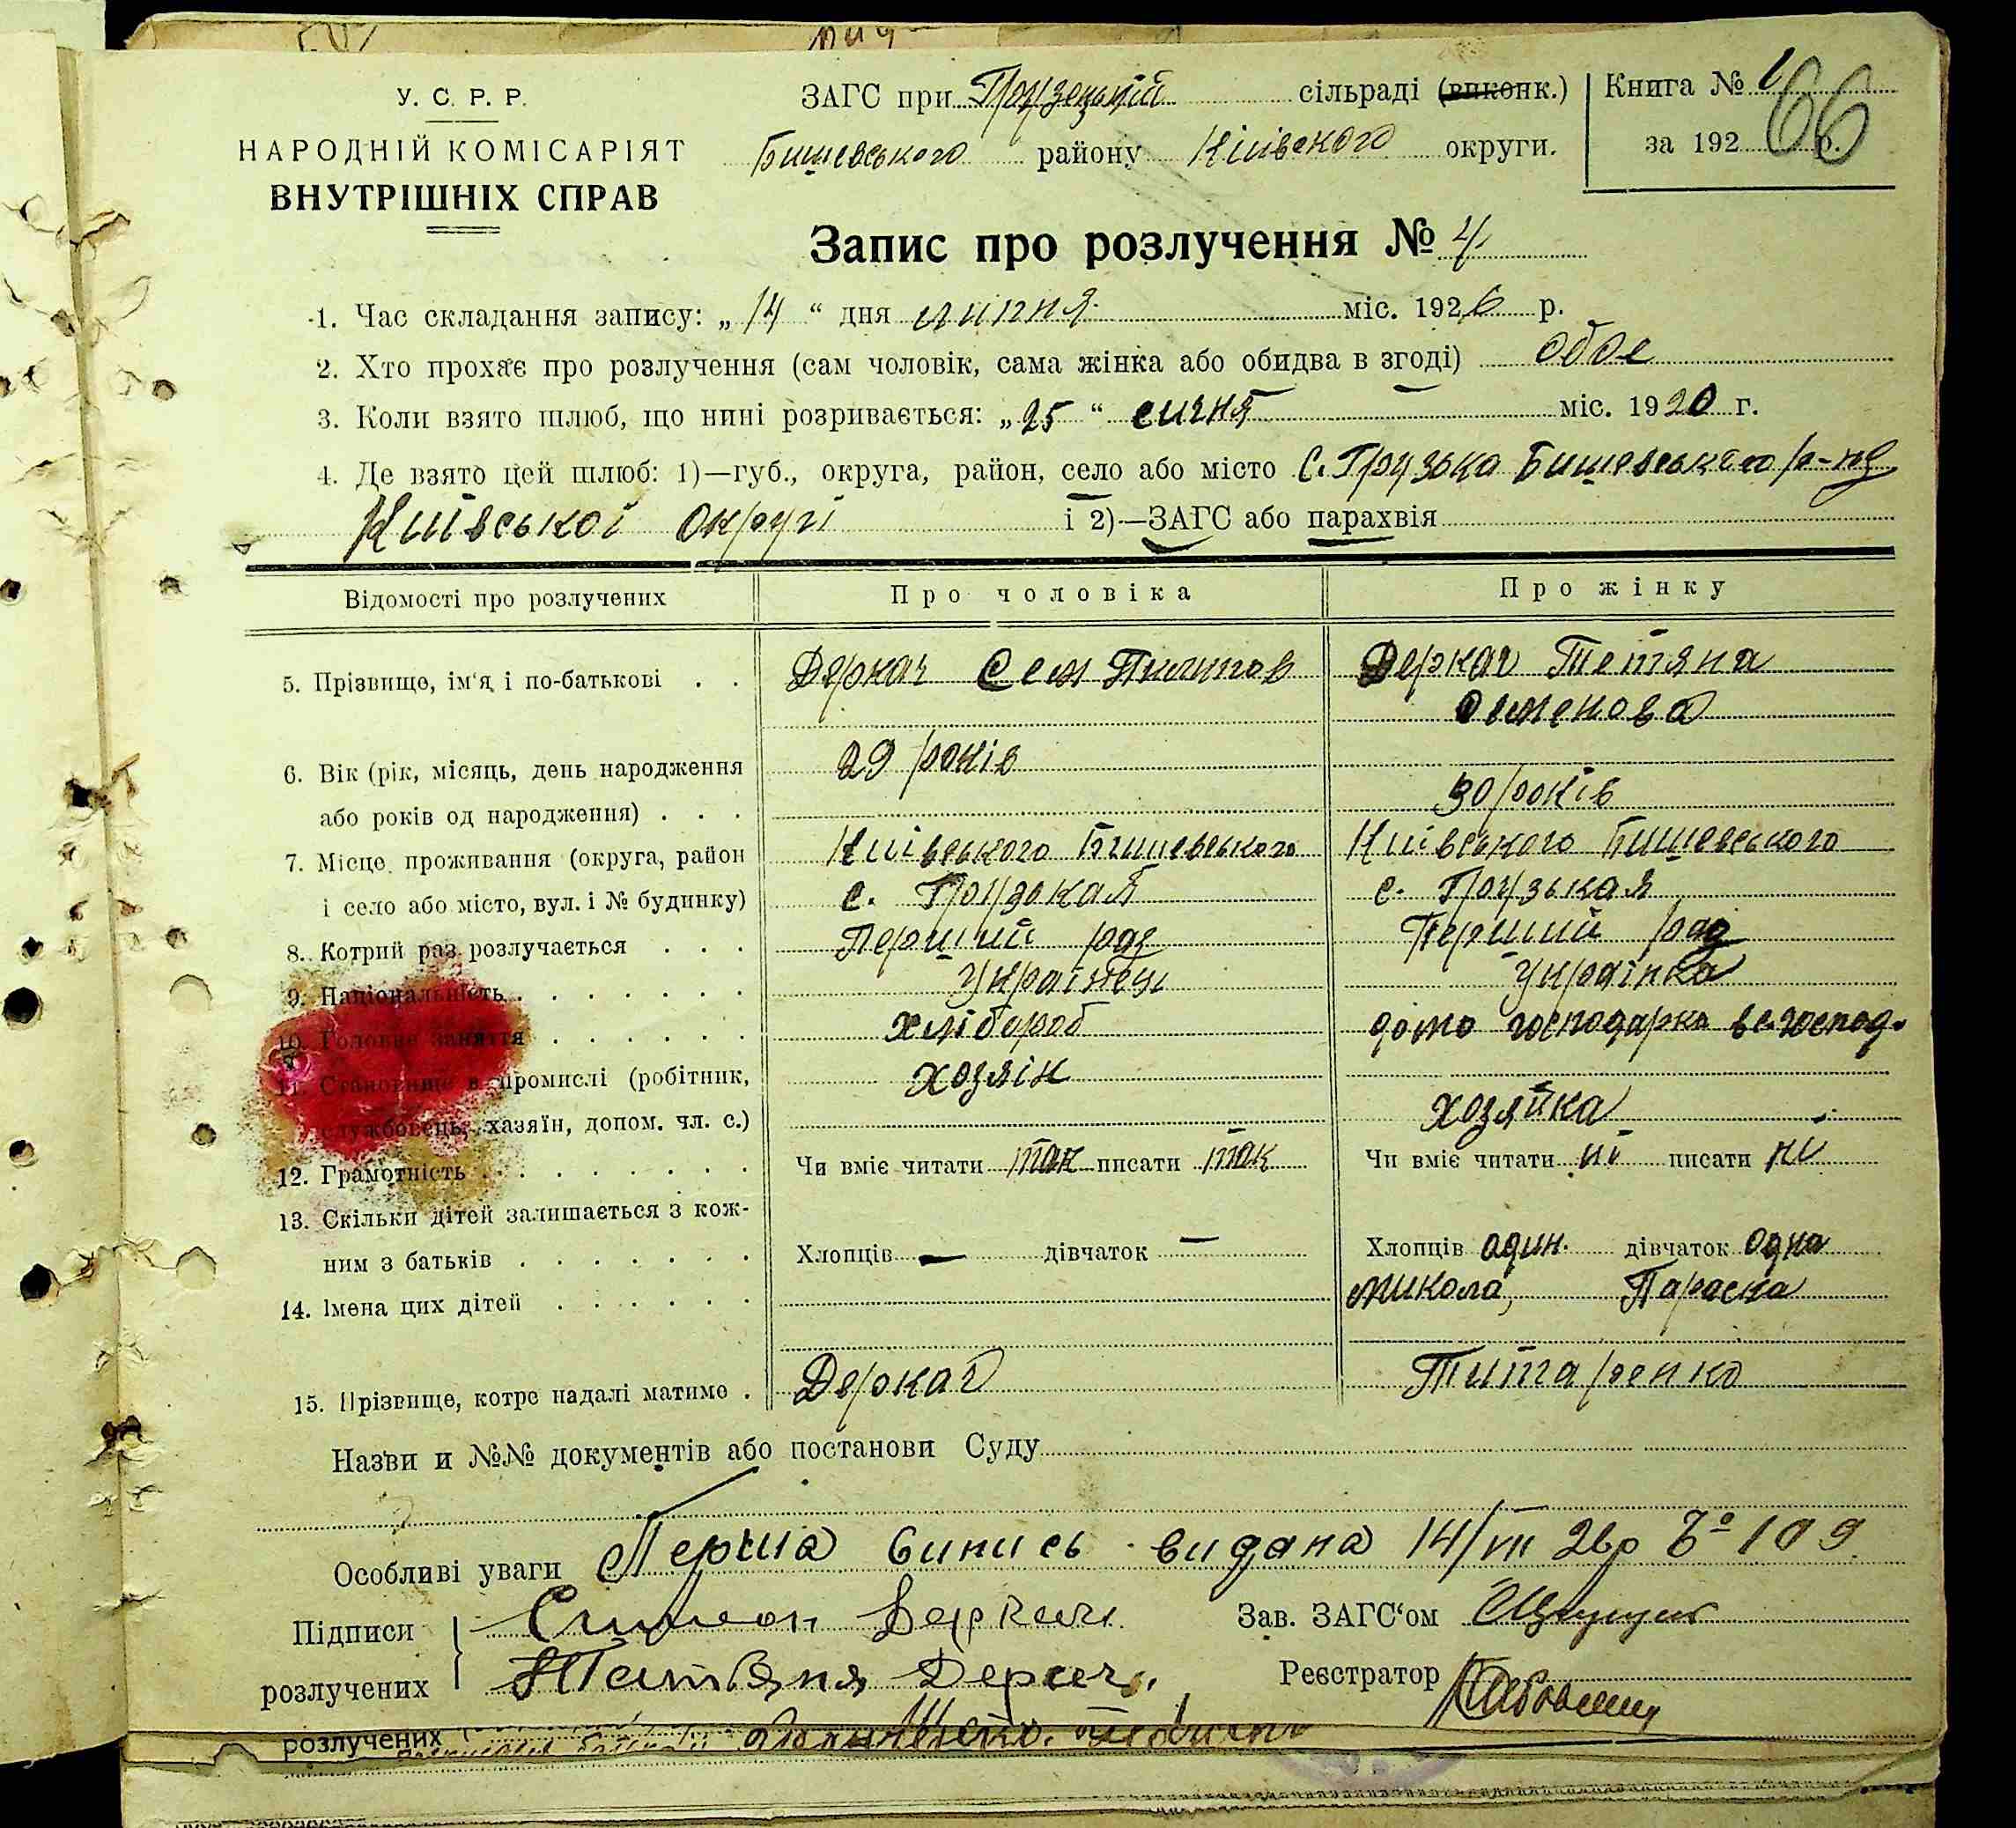 У. С. Р. Р.
НАРОДНІЙ КОМІСАРІЯТ
ВНУТРІШНІХ СПРАВ
ЗАГС при Грузецькій сільраді (виконк.)
Бишевського району Київского округи.
Книга №
66
за 192 р.
Запис про розлучення № 4
1. Час складання запису: „ 14 “ дня липня міс. 1926 р.
2. Хто прохає про розлучення (сам чоловік, сама жінка або обидва в згоді) обоє
3. Коли взято шлюб, що нині розривається: „ 25 “ сичня міс. 1920 г.
4. Де взято цей шлюб: 1)—губ., округа, район, село або місто с. Грузька Бишевського р-ну
Київської округі і 2)—ЗАГС або парахвія
Відомості про розлучених Про чоловіка Про жінку
5. Прізвище, ім'я і по-батькові . . Деркач Сем Пилипов Деркач Тетяна
Семенова
6. Вік (рік, місяць, день народження 29 років
або років од народження) . . . 30 років
7. Місце проживання (округа, район Київського Бишевського Київського Бишевського
і село або місто, вул. і № будинку) с. Грузская с. Грузькая
8. Котрий раз розлучається . . . Перший раз Перший раз
9. Національність . . . . . . . Українець Українка
10. Головне заняття . . . . . . хлібороб домо господарка
11. Становище в промислі (робітник, хозяін
службовець, хазяїн, допом. чл. с.) хозяйка
12. Грамотність . . . . . . . . Чи вміє читати так писати так Чи вміє читати ні писати ні
13. Скільки дітей залишається з кож-
ним з батьків . . . . . . Хлопців — дівчаток — Хлопців один. дівчаток одна
14. Імена цих дітей . . . . . . Микола, Параска
15. Прізвище, котре надалі матиме . Деркач Титаренко
Назви и №№ документів або постанови Суду
Особливі уваги Перша випись видана 14/VII 26р № 109
Підписи Симеон Деркач Зав. ЗАГС'ом
розлучених Татьяня Деркач. Реєстратор
розлучених